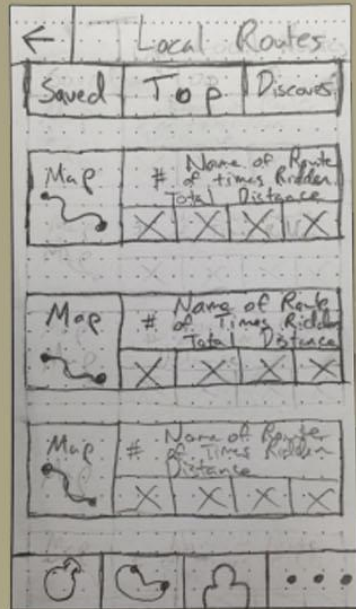 Local Routes
Saved Top Discover
Map
Name of Route
# of times Ridden
Total Distance
Map
Name of Route
# of Times Ridden
Total Distance
Map
Name of Route
# of Times Ridden
Distance